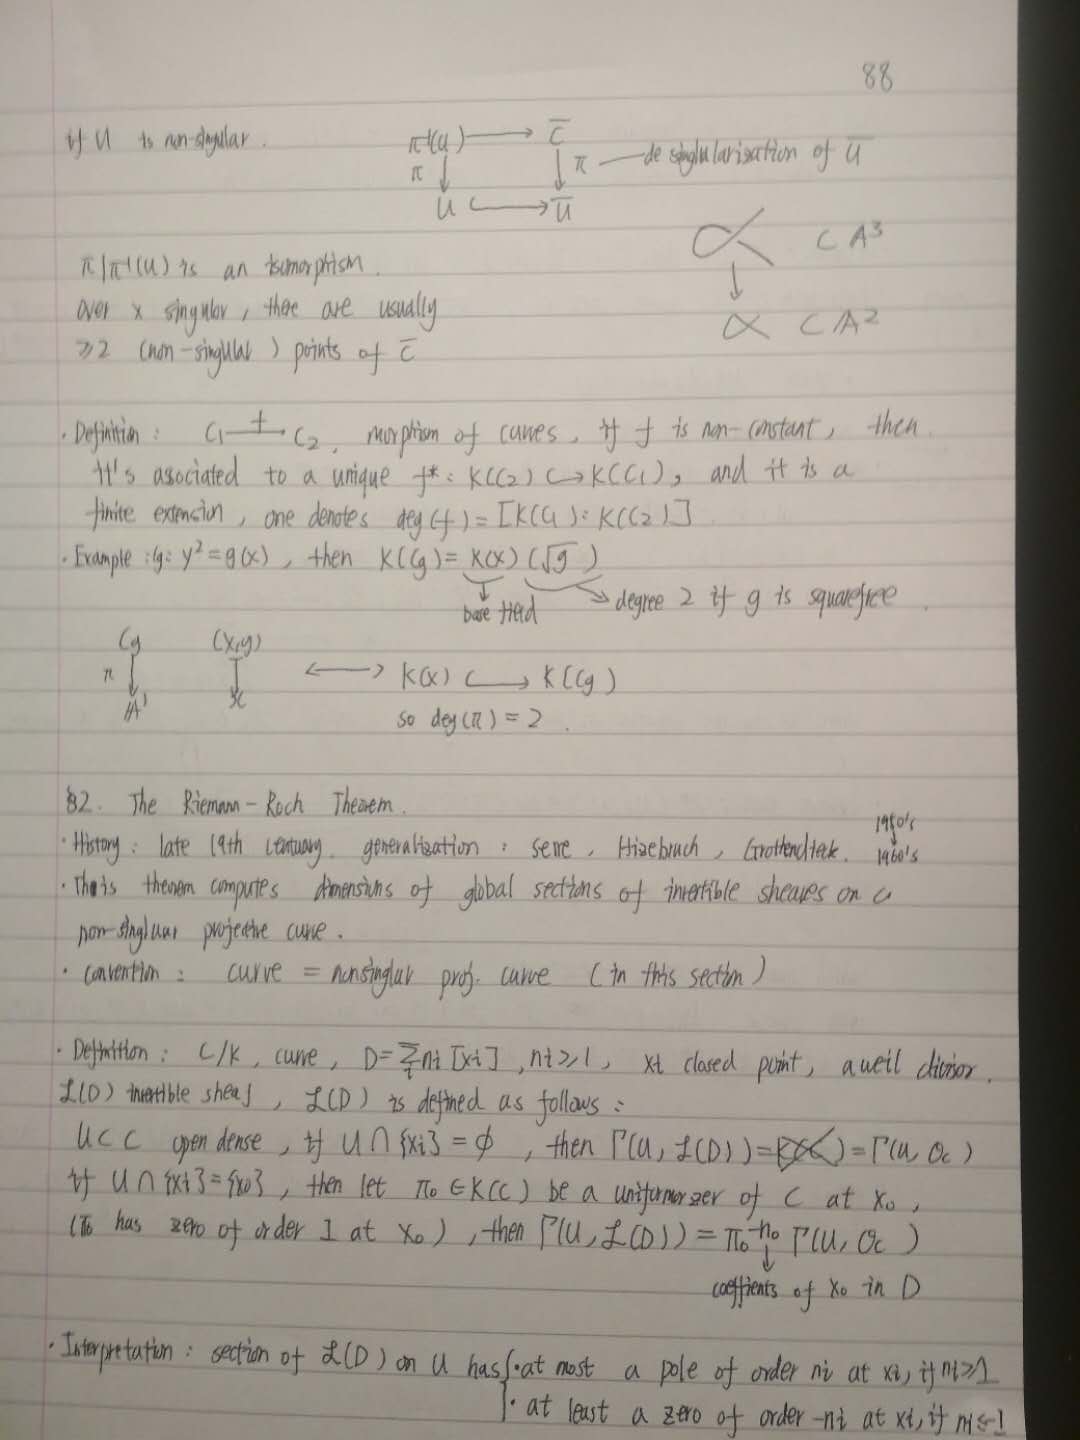 88
if U is non-singular.
π⁻¹(U) → C̄
π ↓ ↓ π — desinglularization of Ū
U ↪ Ū
⊂ A³
π|π⁻¹(U) is an isomorphism.
over x singular, there are usually
⊂ A²
≥2 (non-singular) points of C̄
· Definition: C₁ →f C₂, morphism of curves, if f is non-constant, then
It's asociated to a unique f*: K(C₂) ↪ K(C₁), and it is a
finite extension, one denotes deg(f) = [K(C₁): K(C₂)]
· Example: Cg: y² = g(x), then K(Cg) = K(x) (√g)
base field → degree 2 if g is squarefree.
Cg (x,y)
π ↓ ↓ ⟷ K(x) ↪ K(Cg)
A¹ x
so deg(π) = 2.
§2. The Riemann-Roch Theorem.
1950's
· History: late 19th centuary. generalization: serre, Hizebruch, Grothendieck. 1960's
· Thais theorem computes dimensions of global sections of invertible sheaves on a
non-singluar projective curve.
· Convention: curve = nonsinglar proj. curve (in this section)
· Definition: C/K, curve, D = Σᵢ nᵢ [xᵢ], nᵢ ≥ 1, xᵢ closed point, a weil divisor.
ℒ(D) invertible sheaf, ℒ(D) is defined as follows:
U ⊂ C open dense, if U ∩ {xᵢ} = ∅, then Γ(U, ℒ(D)) = = Γ(U, Oc)
if U ∩ {xᵢ} = {x₀}, then let π₀ ∈ K(C) be a uniformizer of C at x₀,
(π₀ has zero of order 1 at x₀), then Γ(U, ℒ(D)) = π₀^-n₀ Γ(U, Oc)
↓
coeffients of x₀ in D
· Interpretation: section of ℒ(D) on U has { · at most a pole of order nᵢ at xᵢ, if nᵢ ≥ 1
· at least a zero of order -nᵢ at xᵢ, if nᵢ ≤ -1